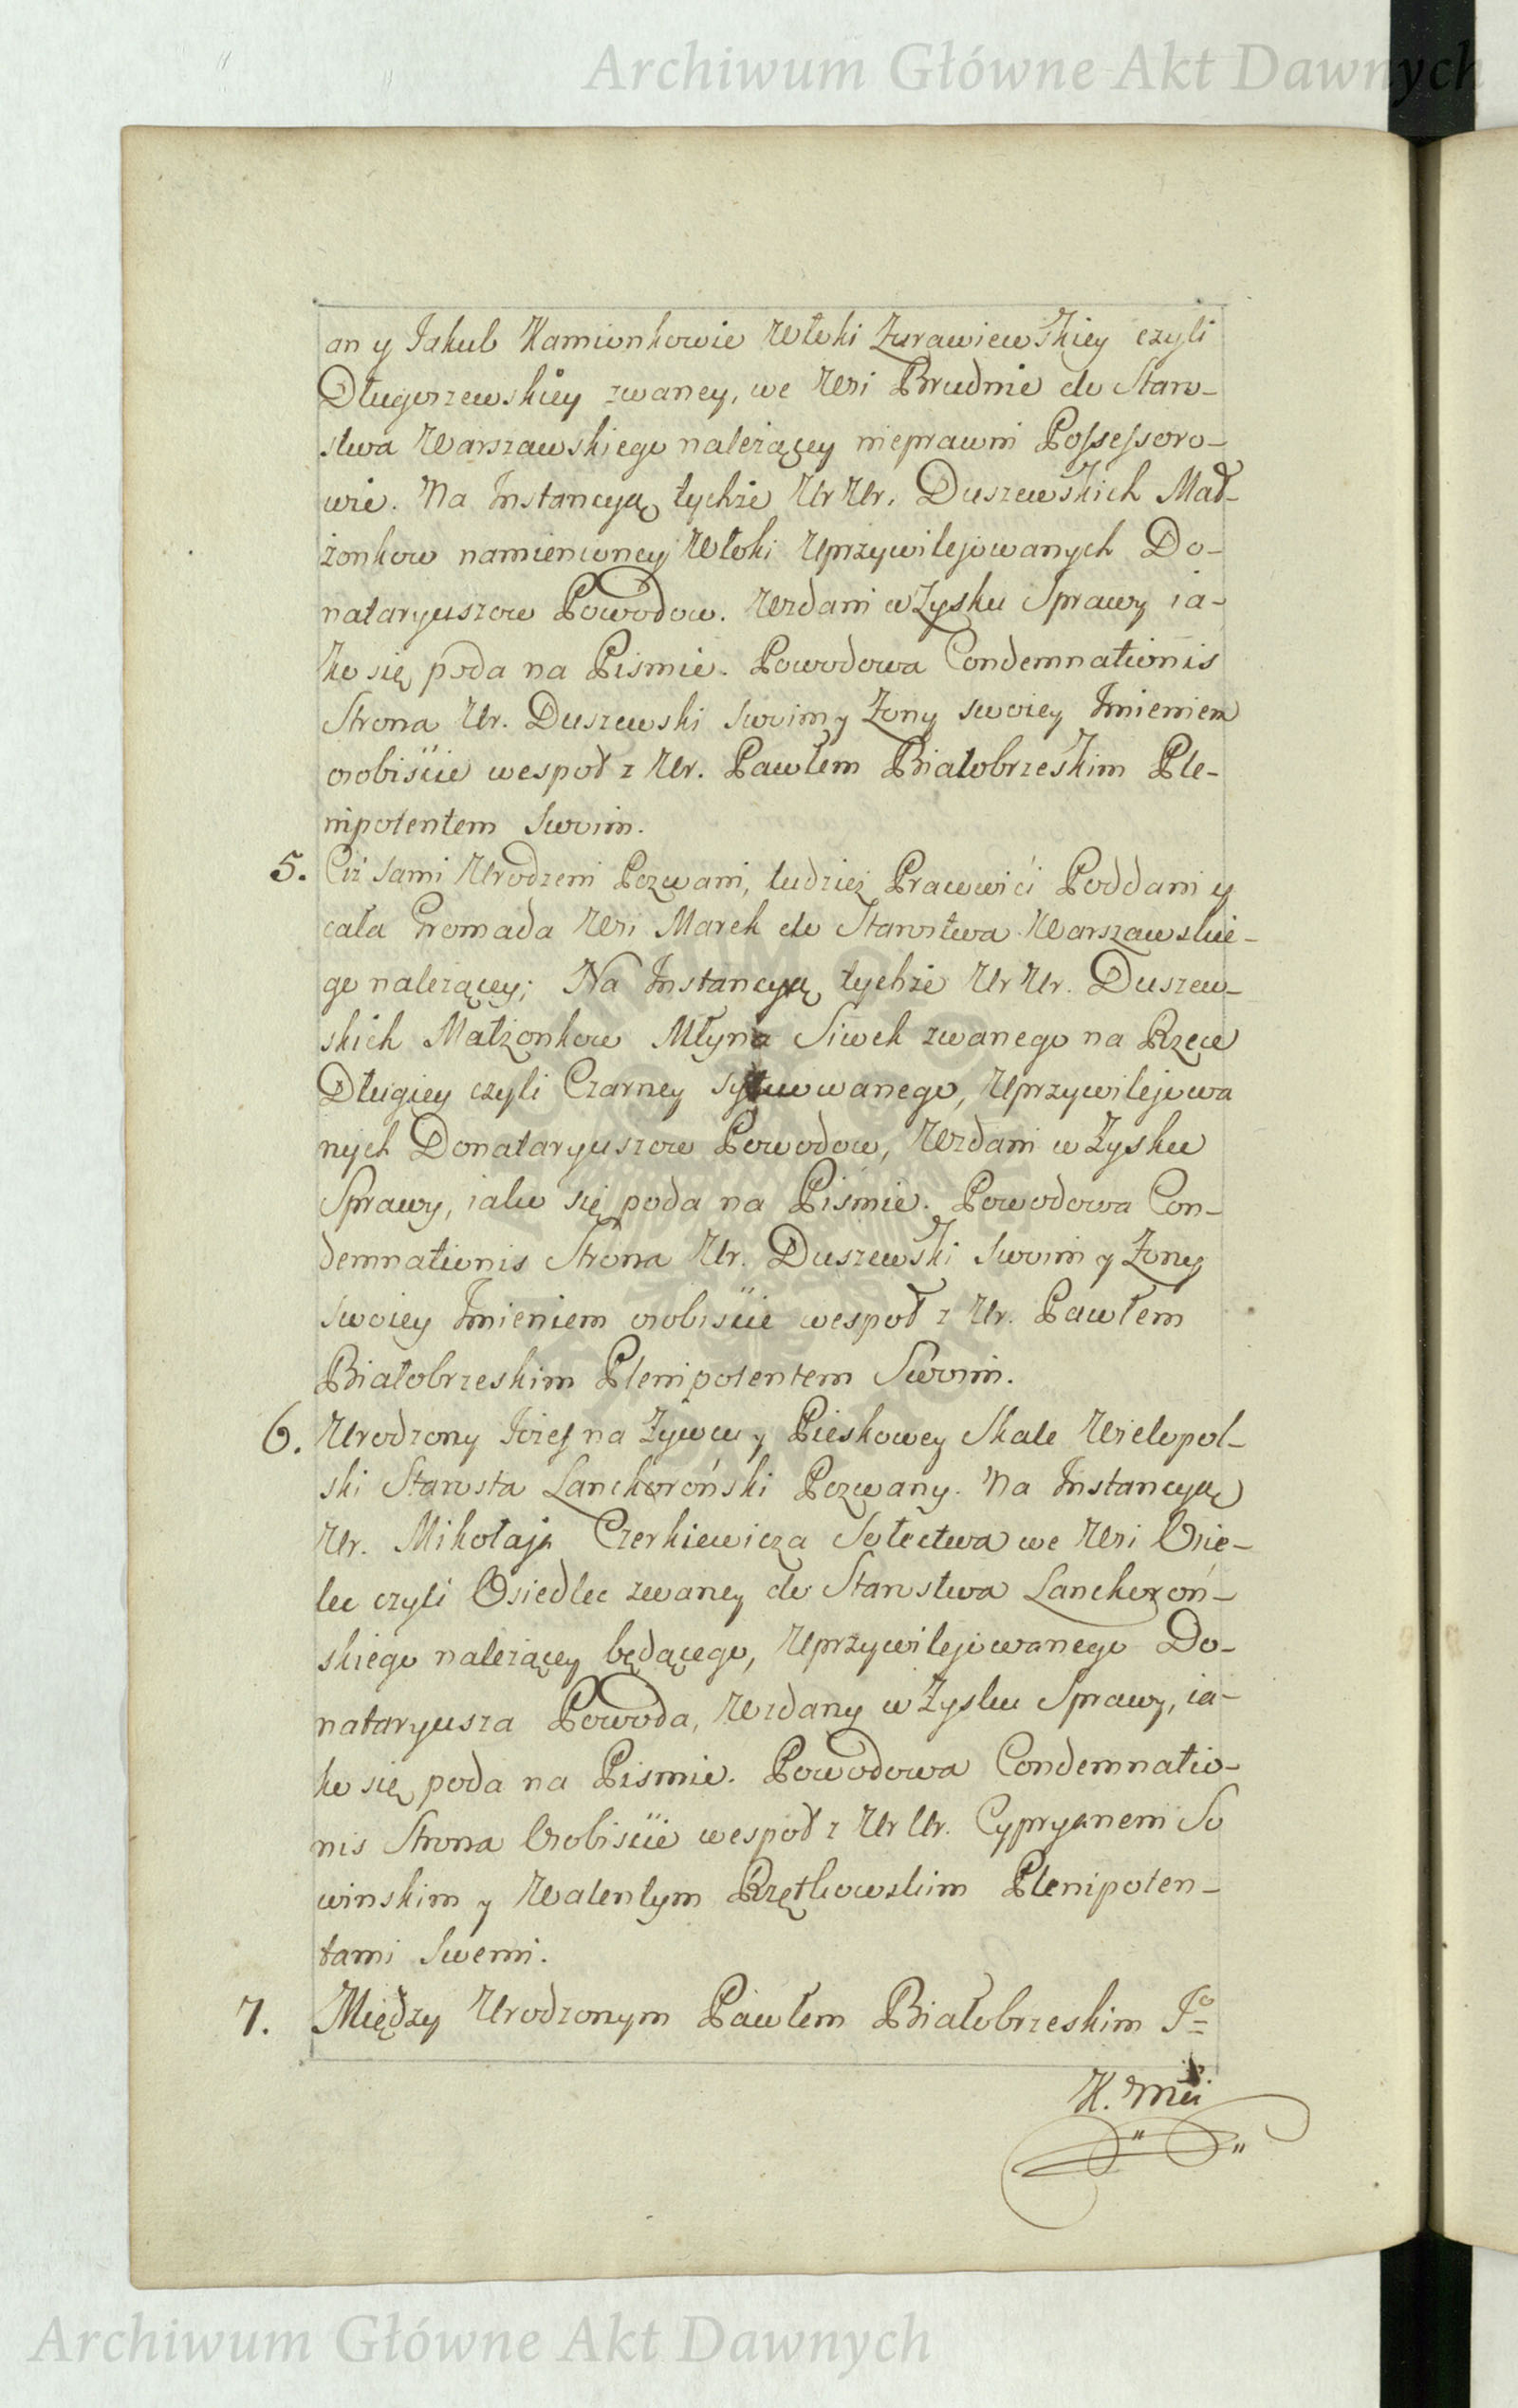 Archiwum Główne Akt Dawnych
an y Jakub Kamionkowie Włoki Zurawiewskiey czyli
Długoszewskiey zwaney, we Wsi Brudnie do Staro-
stwa Warszawskiego należącey nieprawni Possessoro-
wie. Na Instancyą tychże Ur Ur. Duszewskich Mał-
żonkow namienioney Włoki Uprzywilejowanych Do-
nataryuszow Powodow. Wzdani w Zysku Sprawy ia-
ko się poda na Pismie. Powodowa Condemnationis
Strona Ur. Duszewski swoim y Zony swoiey Imieniem
osobiście wespoł z Ur. Pawłem Białobrzeskim Ple-
nipotentem swoim.
5. Ciż sami Urodzeni Pozwani, tudzież Pracowici Poddani y
cała Gromada Wsi Marek do Starostwa Warszawskie-
go należącey; Na Instancyą tychże Ur Ur. Duszew-
skich Małżonkow Młyna Siwek zwanego na Rzece
Długiey czyli Czarney sytuowanego, Uprzywilejowa
nych Donataryuszow Powodow, Wzdani w Zysku
Sprawy, iako się poda na Pismie. Powodowa Con-
demnationis Strona Ur. Duszewski swoim y Zony
swoiey Imieniem osobiście wespoł z Ur. Pawłem
Białobrzeskim Plenipotentem Swoim.
6. Urodzony Józef na Zywcu y Pieskowey Skale Wielopol-
ski Starosta Lanckoroński Pozwany. Na Instancyą
Ur. Mikołaja Czerkiewicza Sołectwa we Wsi Osie-
lec czyli Osiedlec zwaney do Starostwa Lanckoroń-
skiego należącey będącego, Uprzywilejowanego Do-
nataryusza Powoda, Wzdany w Zysku Sprawy, ia-
ko się poda na Pismie. Powodowa Condemnatio-
nis Strona Osobiście wespoł z Ur Ur. Cypryanem So
winskim y Walentym Rzętkowskim Plenipoten-
tami swemi.
7. Między Urodzonym Pawłem Białobrzeskim
Archiwum Główne Akt Dawnych